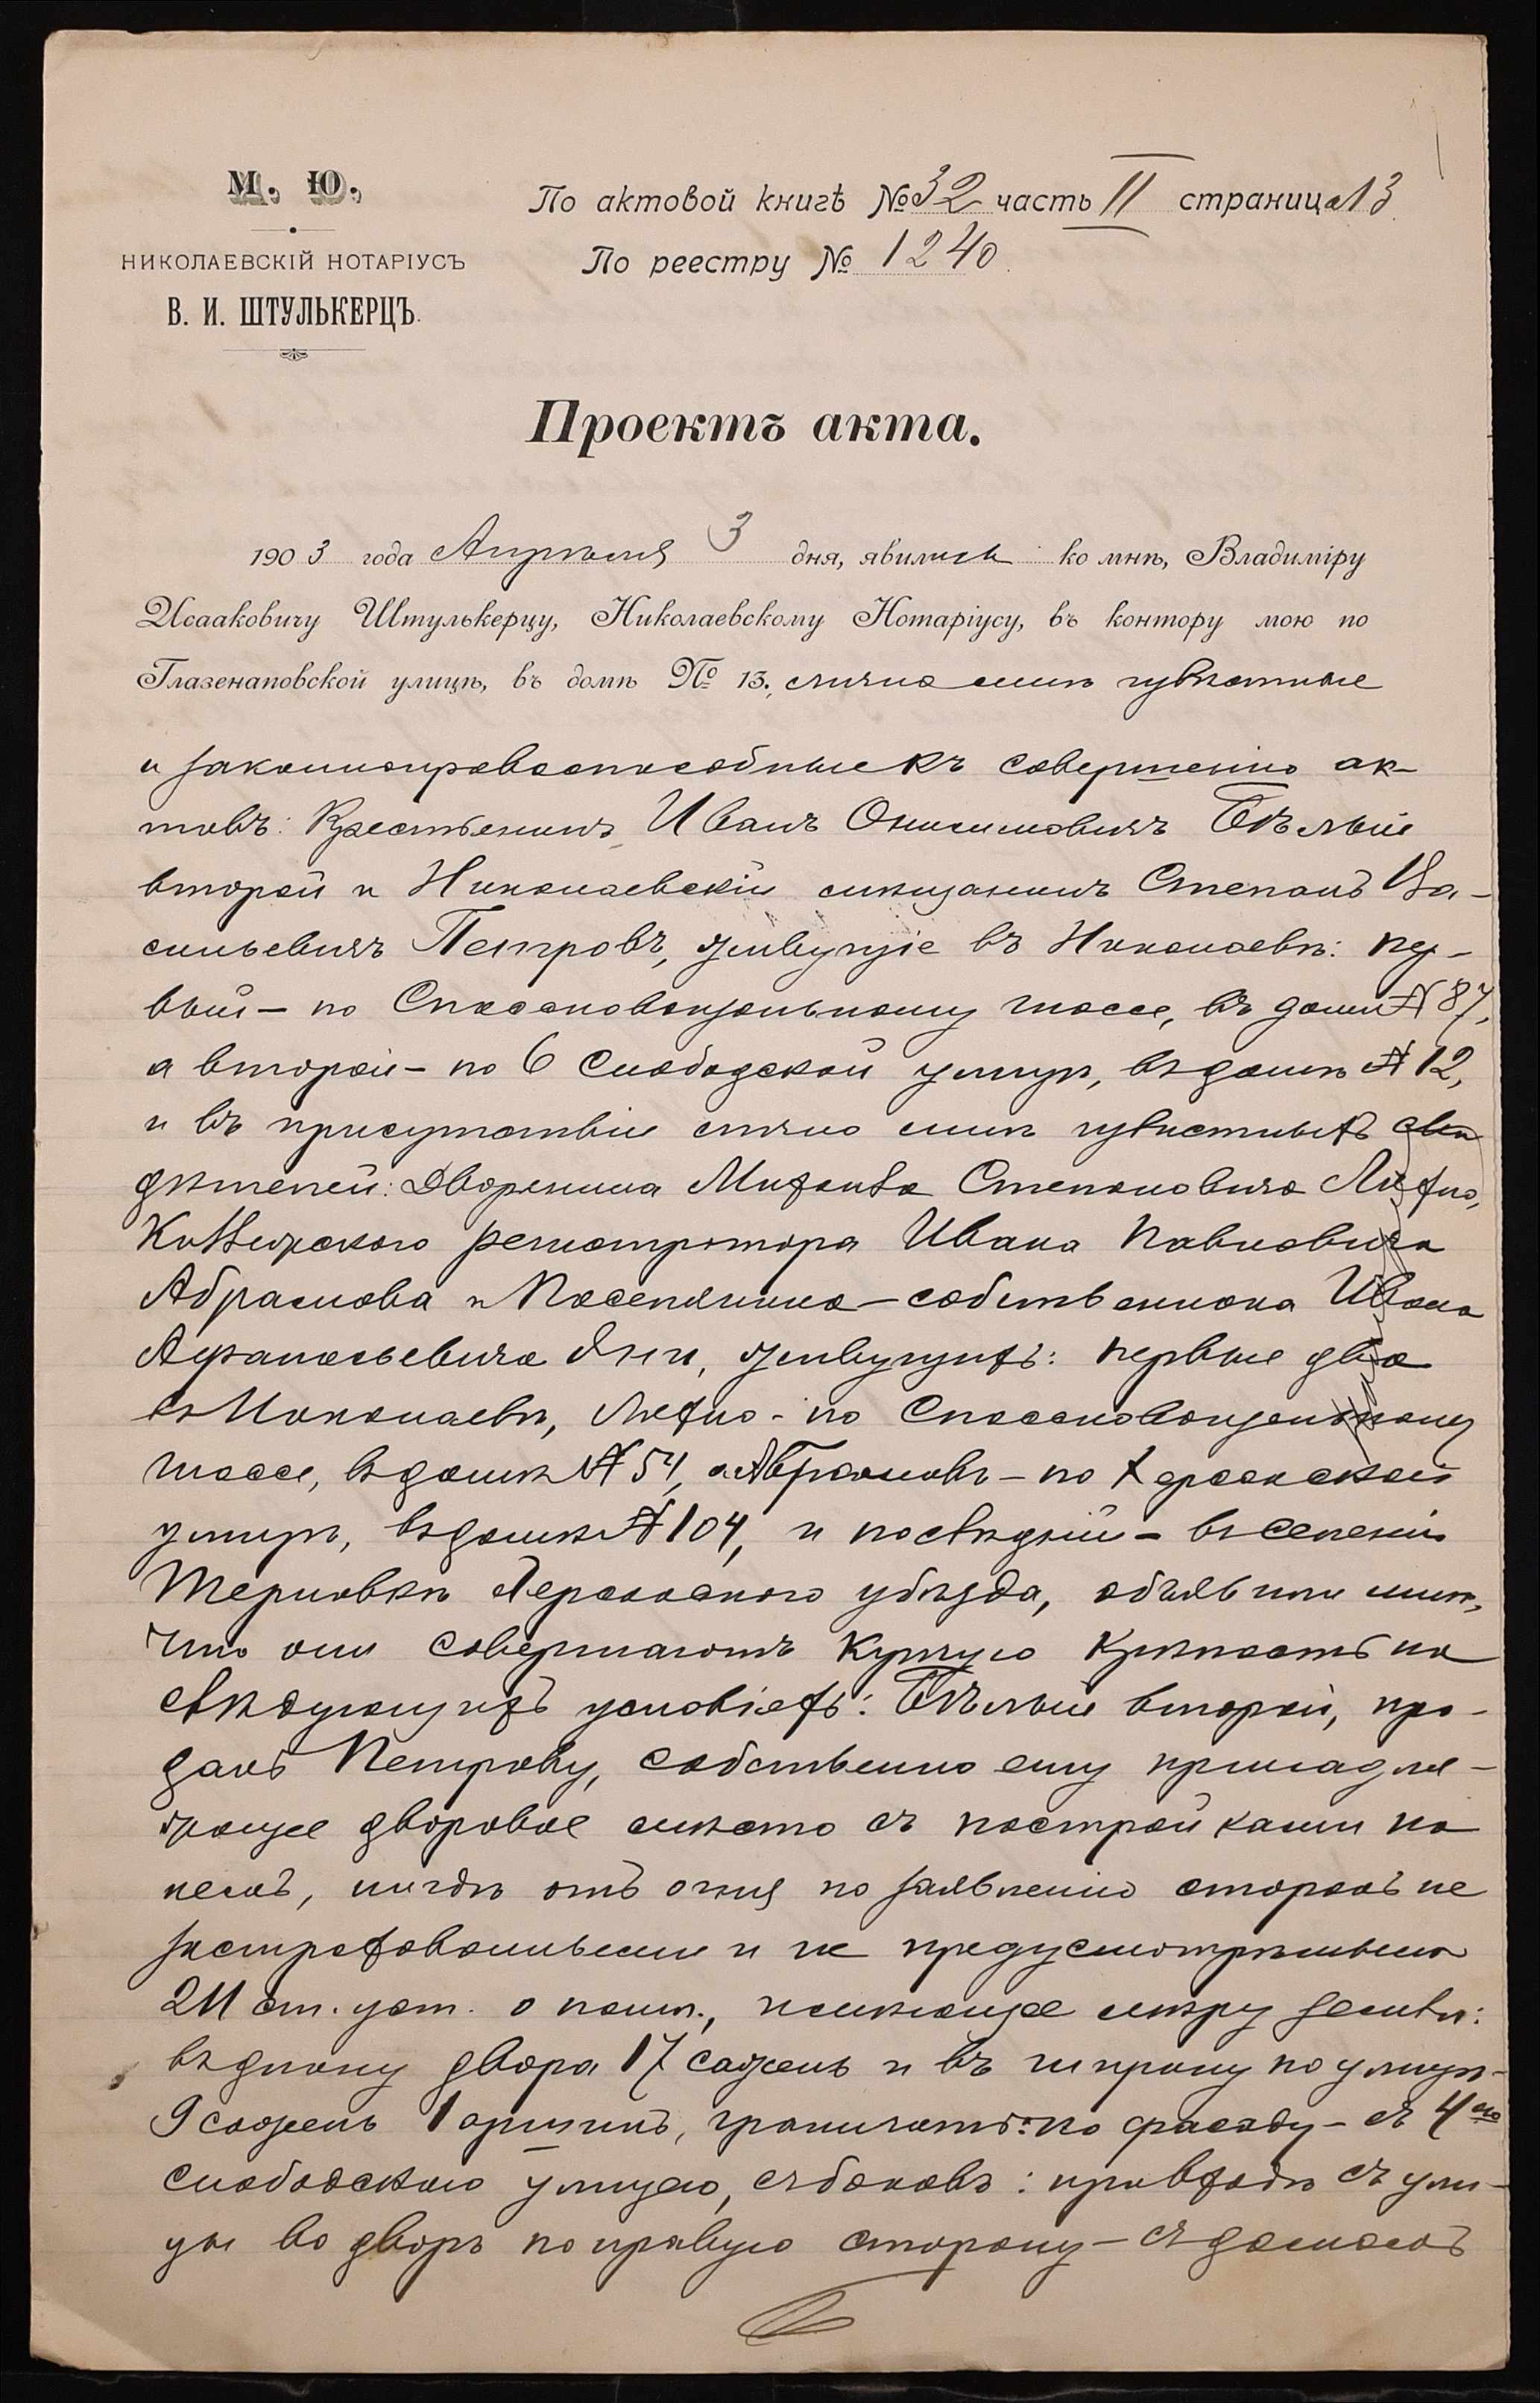 М. Ю.
НИКОЛАЕВСКІЙ НОТАРІУСЪ
В. И. ШТУЛЬКЕРЦЪ.
По актовой книгѣ № 32 часть II страница 13
По реестру № 1240
Проектъ акта.
1903 года Апрѣля 3 дня, явились ко мнѣ, Владиміру
Исааковичу Штулькерцу, Николаевскому Нотаріусу, въ контору мою по
Глазенаповской улицѣ, въ домѣ № 13, лично мнѣ извѣстные
и законноправоспособные къ совершенію ак-
товъ: Крестьянинъ Иванъ Онисимовичъ Бѣлый
второй и Николаевскій мѣщанинъ Степанъ Ва-
сильевичъ Петровъ, живущіе въ Николаевѣ: пер-
вый – по Спасскововокзальному шоссе, въ домѣ № 87,
а второй – по 6 Слободской улицѣ, въ домѣ № 12,
и въ присутствіи лично мнѣ извѣстныхъ сви
дѣтелей: Дворянина Митофа Степановича Лихно,
Коллежскаго регистратора Ивана Павловича
Абрамова и Поселянина-собственника Ивана
Афанасьевича живущихъ: первые два
въ Николаевѣ, Лихно – по Спасскововокзальному
шоссе, въ домѣ № 54, а Абрамовъ – по Херсонской
улицѣ, въ домѣ № 104, и послѣдній – въ селеніи
Терновкѣ Херсонскаго уѣзда, объявили мнѣ,
что они совершаютъ купчую крѣпость на
слѣдующихъ условіяхъ: Бѣлый второй, про-
далъ Петрову, собственно ему принадле-
жащее дворовое мѣсто съ постройками на
немъ, нигдѣ отъ огня по заявленію сторонъ не
застрахованными и не предусмотрѣнными
211 ст. уст. о пошл., имѣющее мѣру земли:
въ длину двора 17 сажень и въ ширину по улицѣ –
9 сажень 1 аршинъ, граничитъ: по фасаду – съ 4ою
слободскою улицею, съ боковъ: при входѣ съ ули-
цы во дворъ по правую сторону – съ домомъ